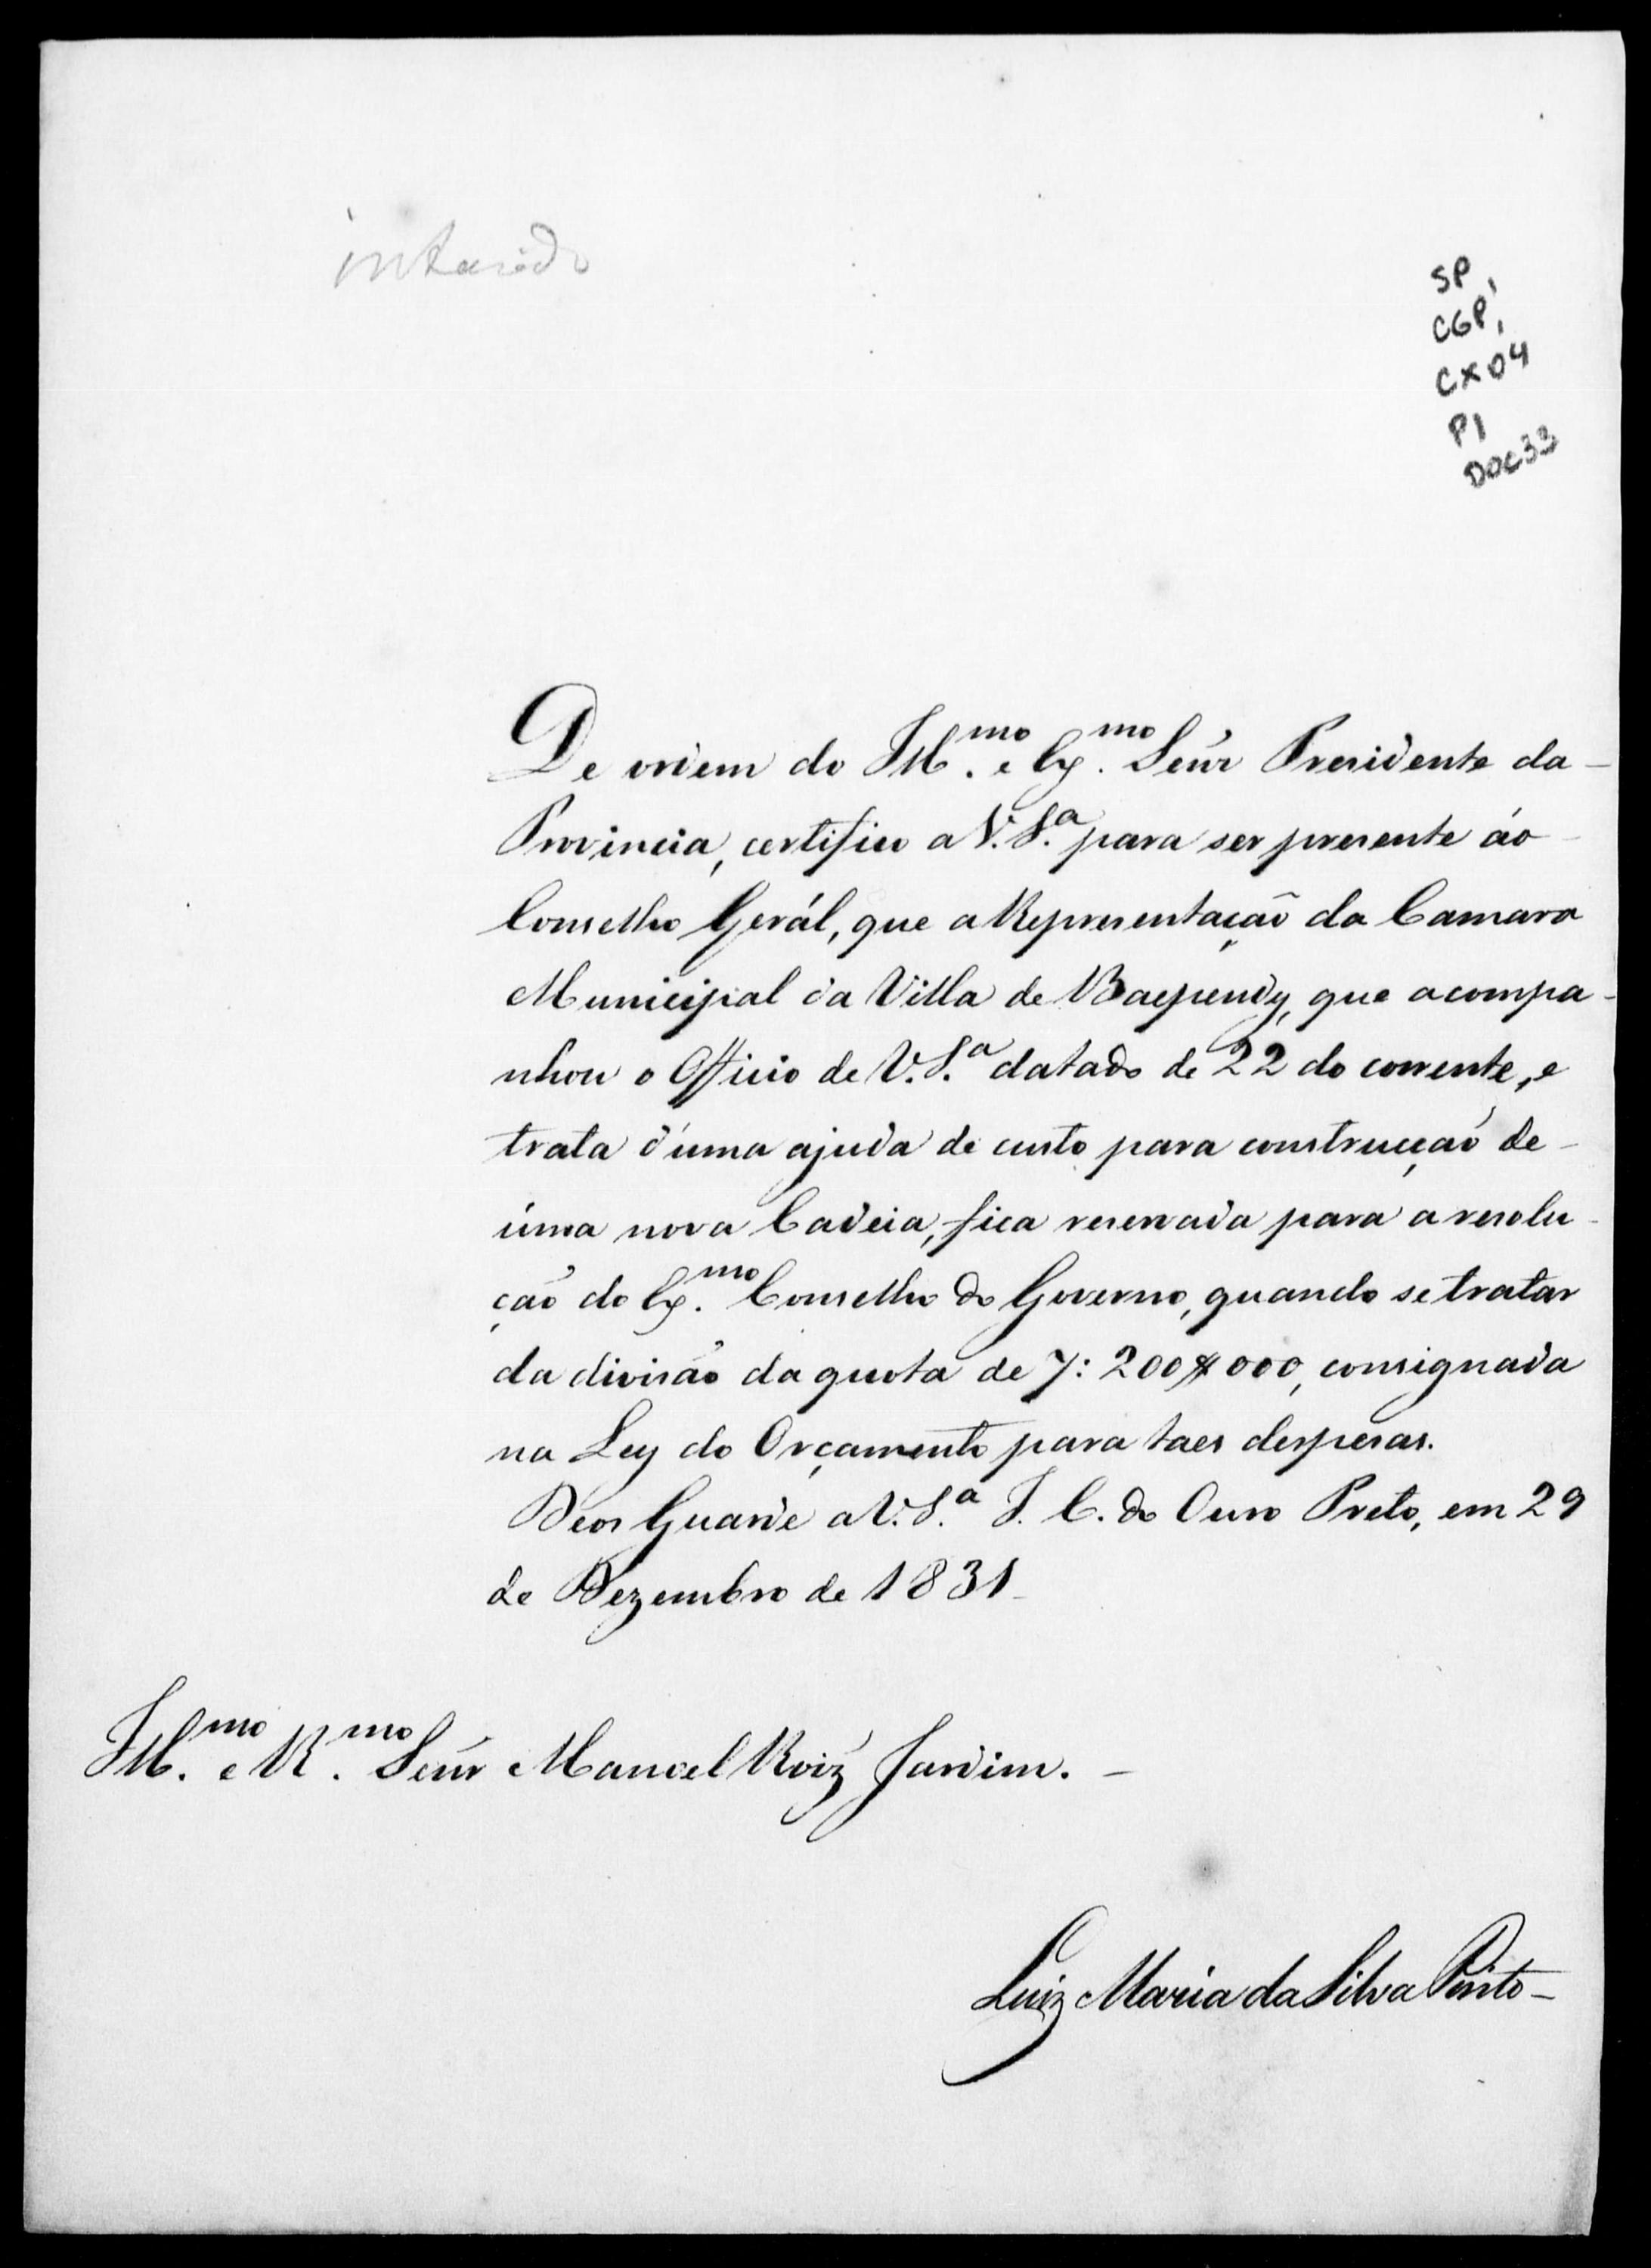 inteirado
SP,
CGP,
CX04
P1
DOC33
De ordem do Ill.mo e Ex.mo Señr Presidente da
Provincia, certifico a V. S.a para ser presente áo
Conselho Gerál, que a Representação da Camara
Municipal da Villa de Baependy, que acompa-
nhou o Officio de V. S.a datado de 22 do corrente, e
trata d'uma ajuda de custo para construcção de
úma nova Cadeia, fica reservada para a resolu-
ção do Ex.mo Conselho do Governo, quando se tratar
da divisão da quota de 7:200$000, consignada
na Ley do Orçamento para taes despesas.
Deos Guarde a V. S.a I. C. do Ouro Preto, em 29
de Dezembro de 1831
Ill.mo e R.mo Señr Manoel Roiz Jardim.
Luiz Maria da Silva Pinto